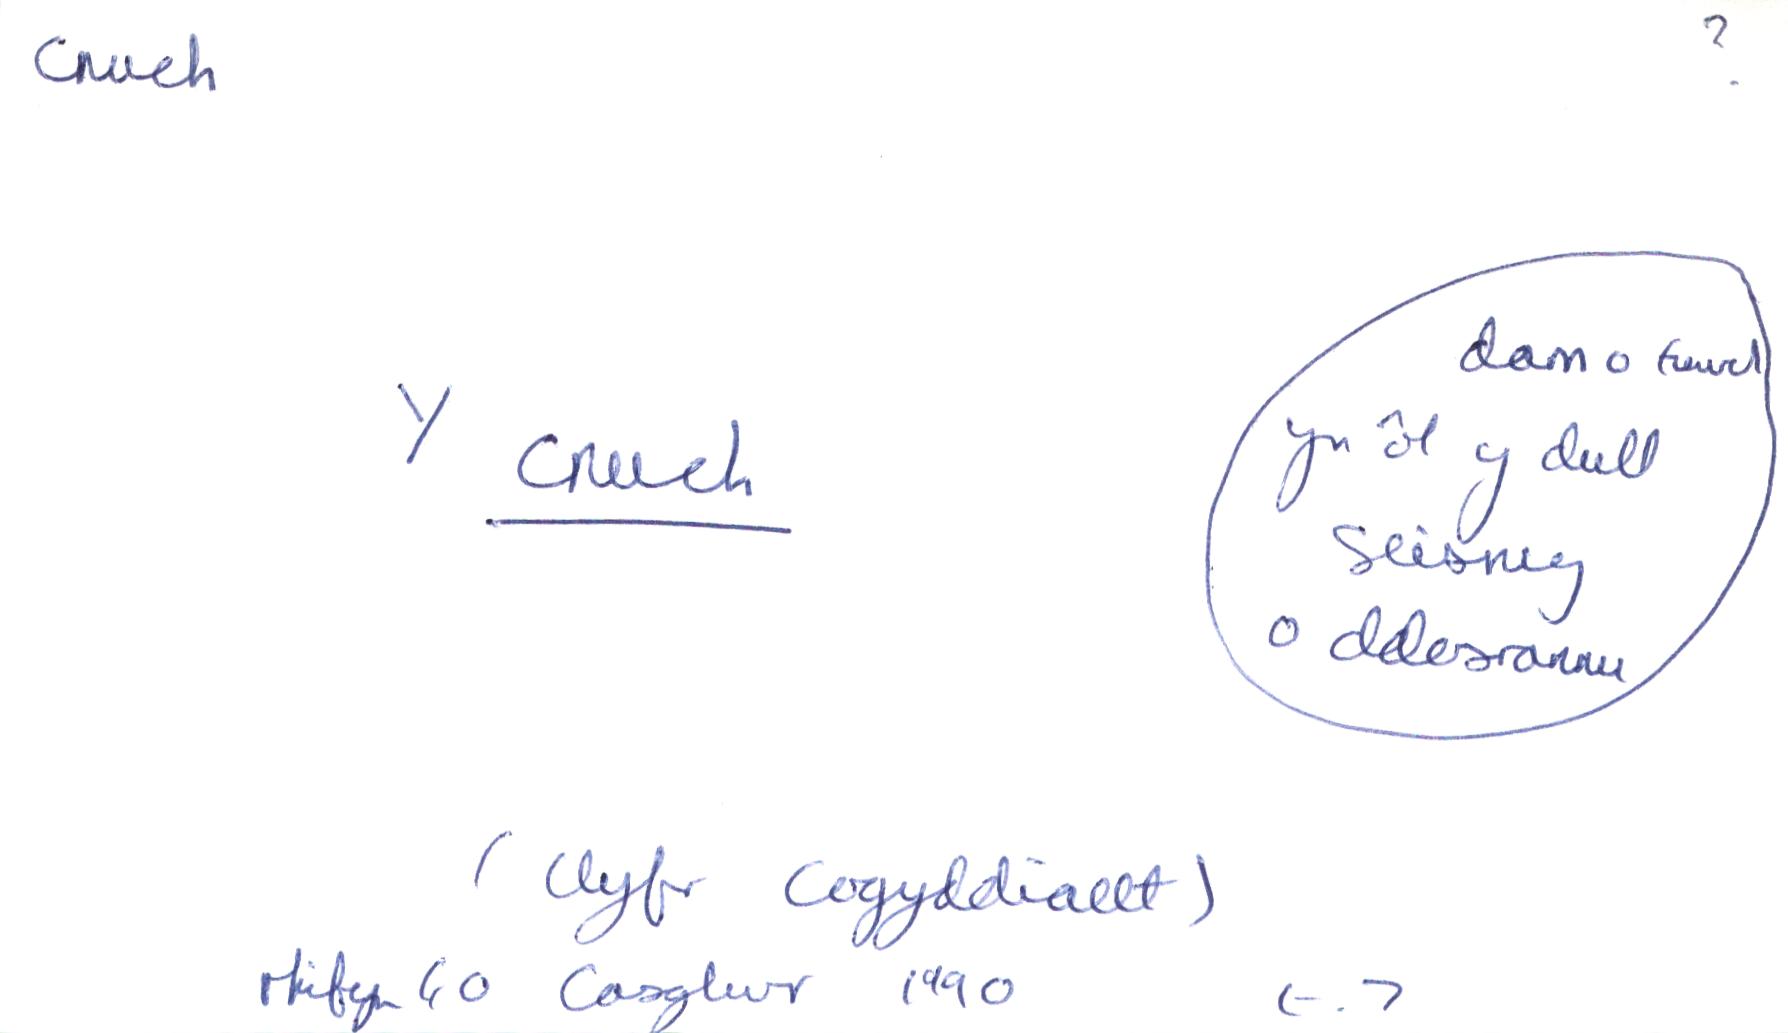 Cnuch ?
Y Cnuch
dam o
yn ôl y dull
Seisneg
o ddosrannu
(Llyfr Cogyddiaeth)
rhifyn 40 Casglwr 1990